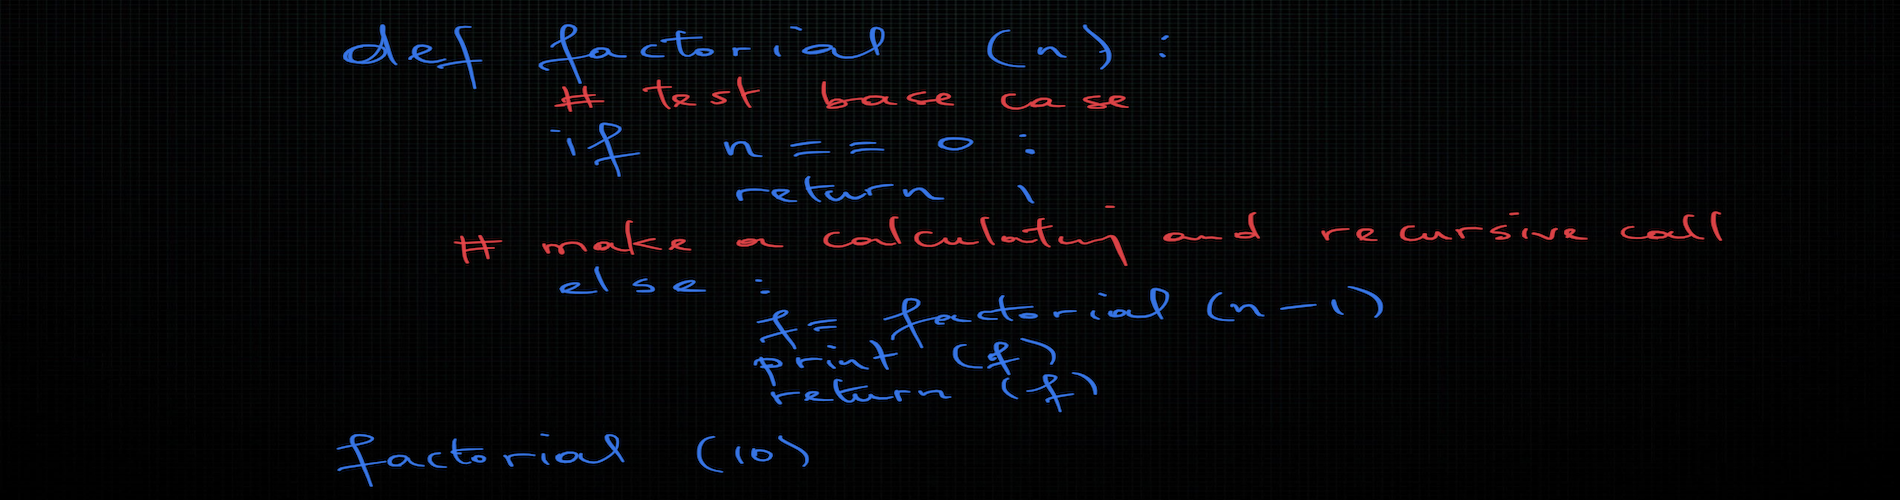 def factorial (n) :
# test base case
if n == 0 :
return 1
# make a calculating and recursive call
else :
f = factorial (n - 1)
print (f)
return (f)
factorial (10)